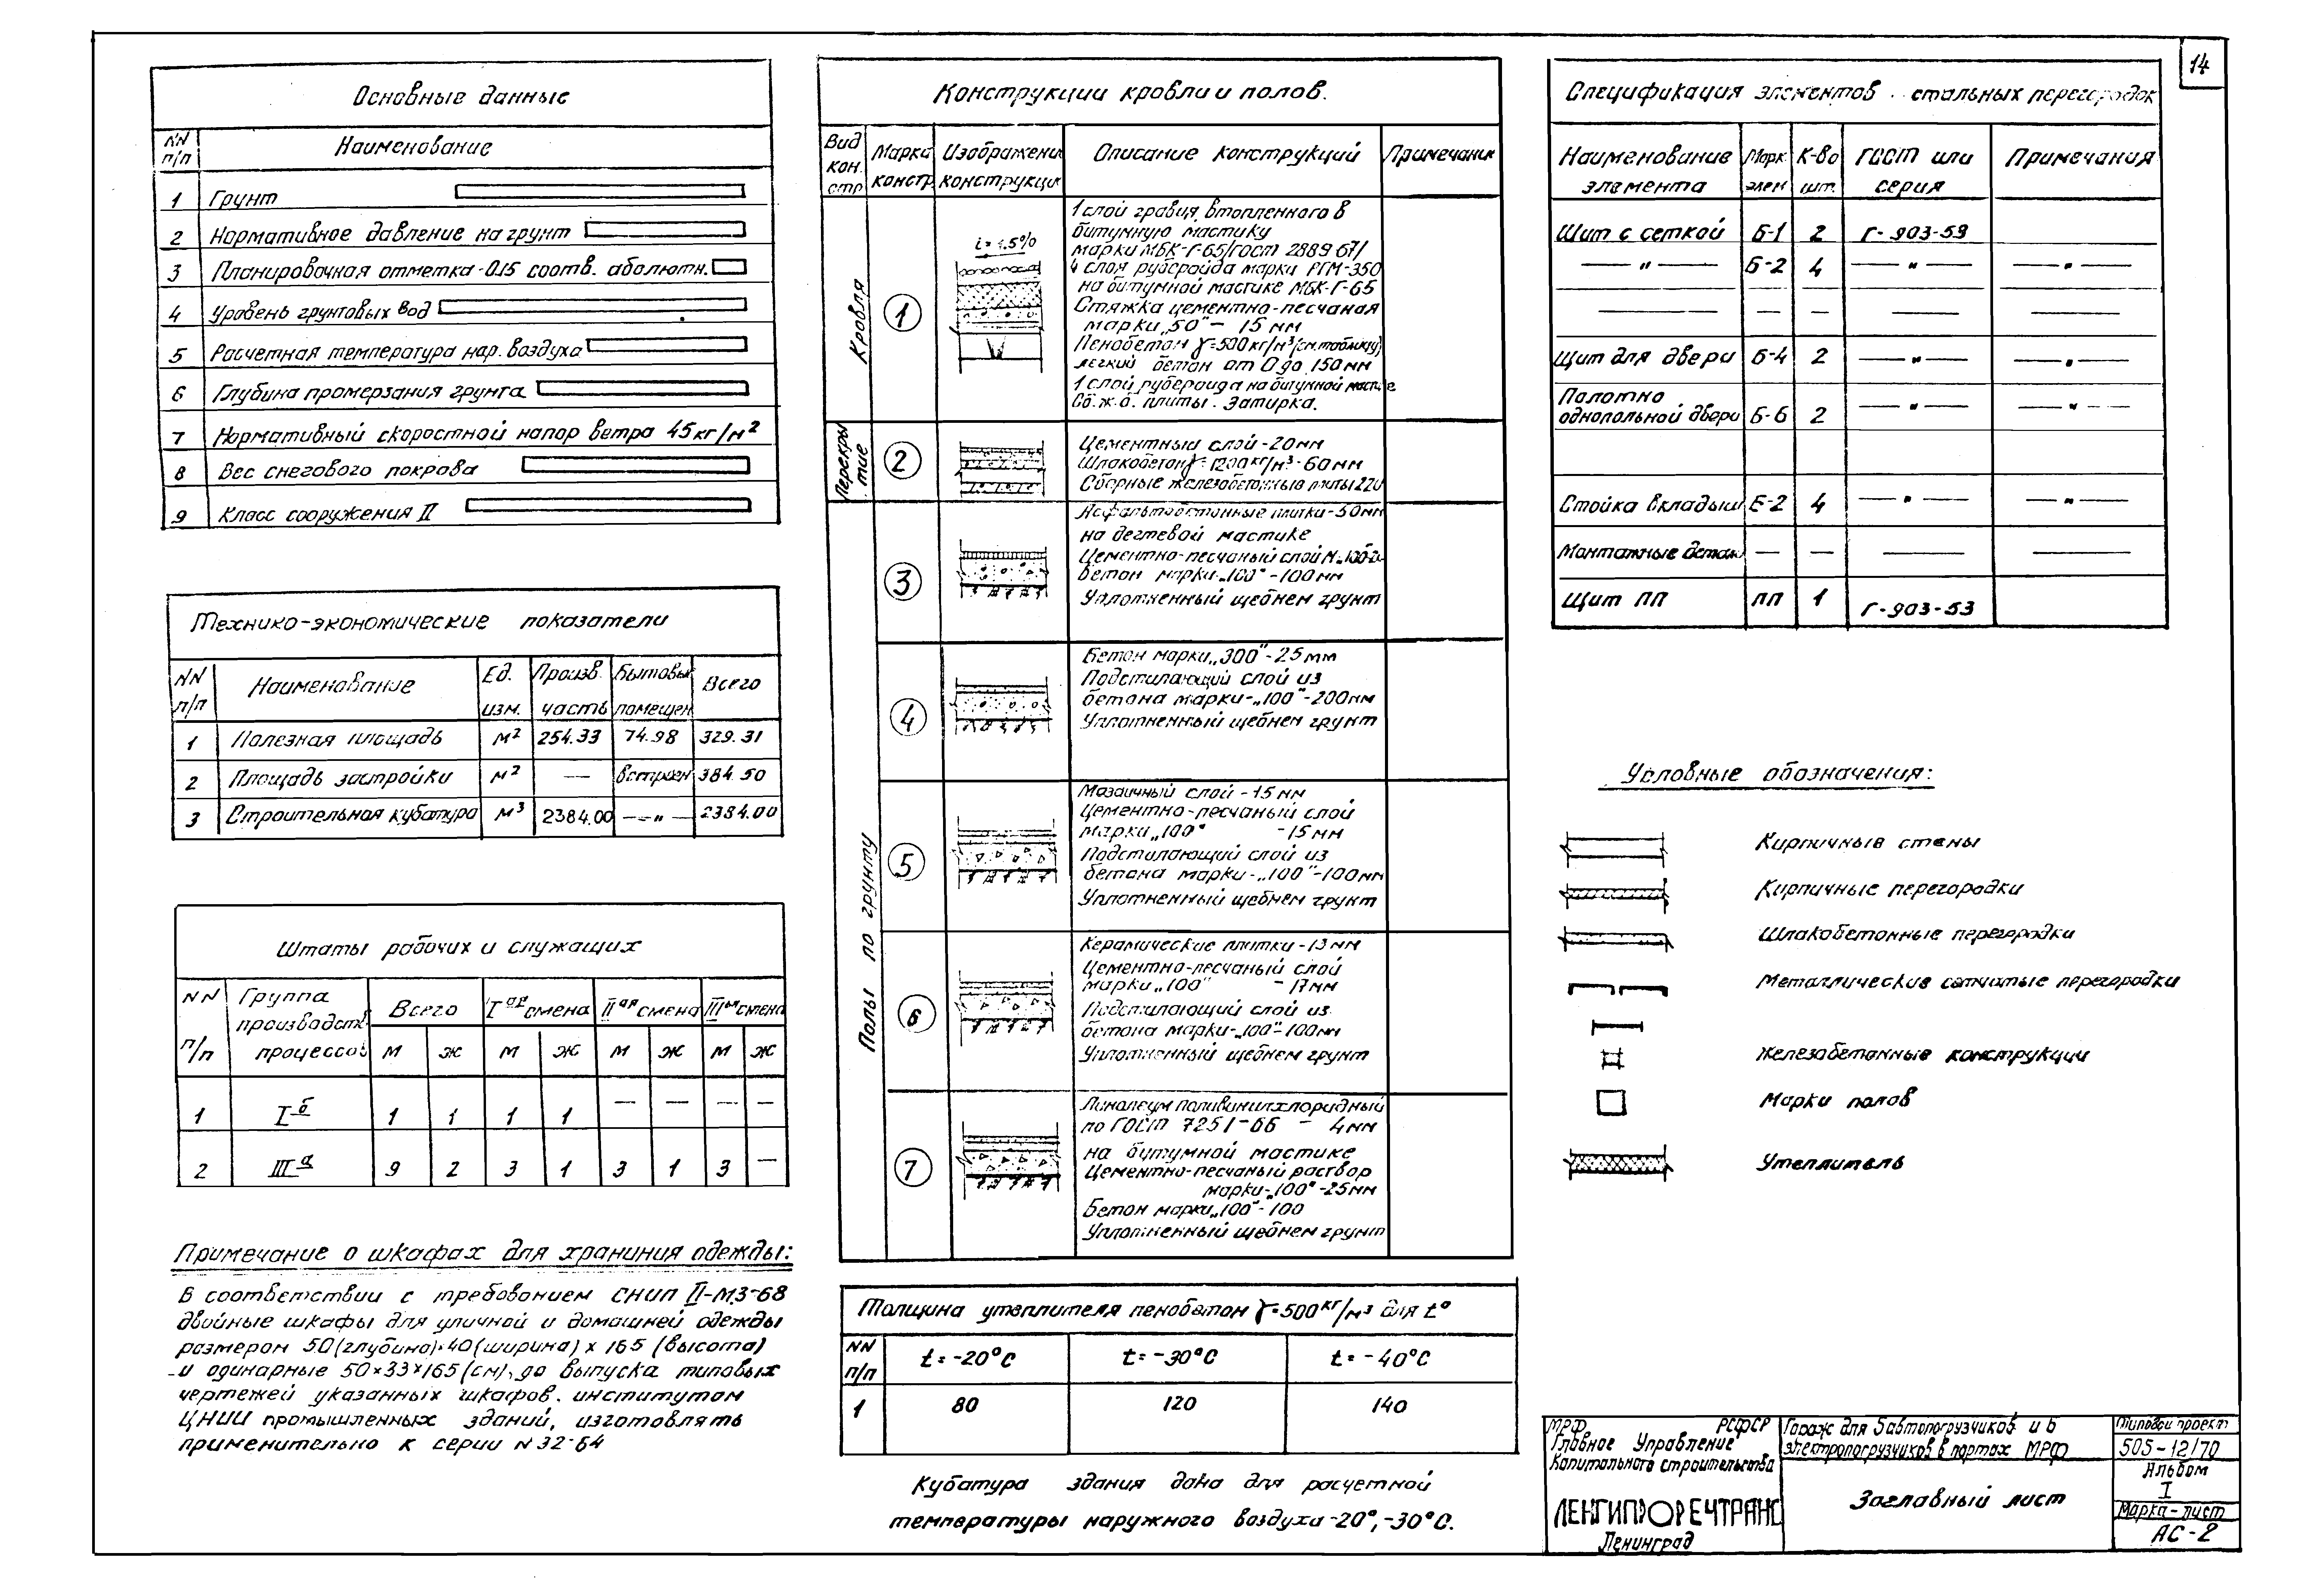 14
Основные данные
NN п/п Наименование
1 Грунт
2 Нормативное давление на грунт
3 Планировочная отметка -0.15 соотв. аболютн.
4 Уровень грунтовых вод
5 Расчетная температура нар. воздуха
6 Глубина промерзания грунта
7 Нормативный скоростной напор ветра 45 кг/м²
8 Вес снегового покрова
9 Класс сооружения II
Технико-экономические показатели
NN п/п Наименование Ед. изм. Произв. часть Бытовых помещен Всего
1 Полезная площадь м² 254.33 74.98 329.31
2 Площадь застройки м² — встроен 384.50
3 Строительная кубатура м³ 2384.00 —„— 2384.00
Штаты рабочих и служащих
NN п/п Группа производств. процессов Всего Iая смена IIая смена IIIья смена
м ж м ж м ж м ж
1 Iб 1 1 1 1 — — — —
2 IIIа 9 2 3 1 3 1 3 —
Примечание о шкафах для храниния одежды:
В соответствии с требованием СНИП II-М.3-68
двойные шкафы для уличной и домашней одежды
размером 50(глубина)×40(ширина) х 165 (высота)
и одинарные 50×33×165(см), до выпуска типовых
чертежей указанных шкафов. институтом
ЦНИИ промышленных зданий, изготовлять
применительно к серии N 32-64
Конструкции кровли и полов.
Вид кон. стр Марка констр Изображени конструкци Описание конструкций Примечание
Кровля
1
i=1.5%
1 слой гравия, втопленного в
битумную мастику
марки МБК-Г-65/гост 2889 67/
4 слоя рубероида марки РГМ-350
на битумной мастике МБК-Г-65
Стяжка цементно-песчаная
марки „50" - 15 мм
Пенобетон γ=500кг/м³/см.таблицу/
легкий бетон от 0 до 150мм
1 слой рубероида на битумной мастике
Сб.ж.б. плиты. Затирка.
Перекры тие
2
Цементный слой-20мм
Шлакобетон γ=1200кг/м³-60мм
Сборные железобетонные плиты 220
Полы по грунту
3
Асфальтобетонные плитки-50мм
на дегтевой мастике
Цементно-песчаный слой
бетон марки-„100"-100мм
Уплотненный щебнем грунт
4
Бетон марки„300"-25мм
Подстилающий слой из
бетона марки-„100"-200мм
Уплотненный щебнем грунт
5
Мозаичный слой-15мм
Цементно-песчаный слой
марки„100" -15мм
Подстилающий слой из
бетона марки-„100"-100мм
Уплотненный щебнем грунт
6
Керамические плитки-13мм
Цементно-песчаный слой
марки„100" -17мм
Подстилающий слой из
бетона марки-„100"-100мм
Уплотненный щебнем грунт
7
Линолеум поливинилхлоридный
по ГОСТ 7251-66 - 4мм
на бутумной мастике
Цементно-песчаный раствор
марки-„100"-25мм
Бетон марки„100"-100
Уплотненный щебнем грунт
Толщина утеплителя пенобетон γ=500кг/м³ для t°
NN п/п t=-20°C t=-30°C t=-40°C
1 80 120 140
Кубатура здания дана для расчетной
температуры наружного воздуха -20°,-30°С.
Спецификация элементов стальных перегородок
Наименование элемента Марк элем К-во шт. ГОСТ или серия Примечания
Щит с сеткой Б-1 2 Г-903-59
—„— Б-2 4 —„— —„—
— — — — —
Щит для двери Б-4 2 —„— —„—
Полотно однопольной двери Б-6 2 —„— —„—
Стойка вкладыш Е-2 4 —„— —„—
Монтажные детал — — — —
Щит ПП ПП 1 Г-903-53
Условные обозначения:
Кирпичные стены
Кирпичные перегородки
Шлакобетонные перегородки
Металлические сетчатые перегородки
Железобетонные конструкции
Марки полов
Утеплитель
МРФ РСФСР
Главное Управление
Капитального строительства
ЛЕНГИПРОРЕЧТРАНС
Ленинград
Гараж для 5автопогрузчиков и 6
электропогрузчиков в портах МРФ
Заглавный лист
Типовой проект
505-12/70
Альбом
I
Марка-лист
АС-2